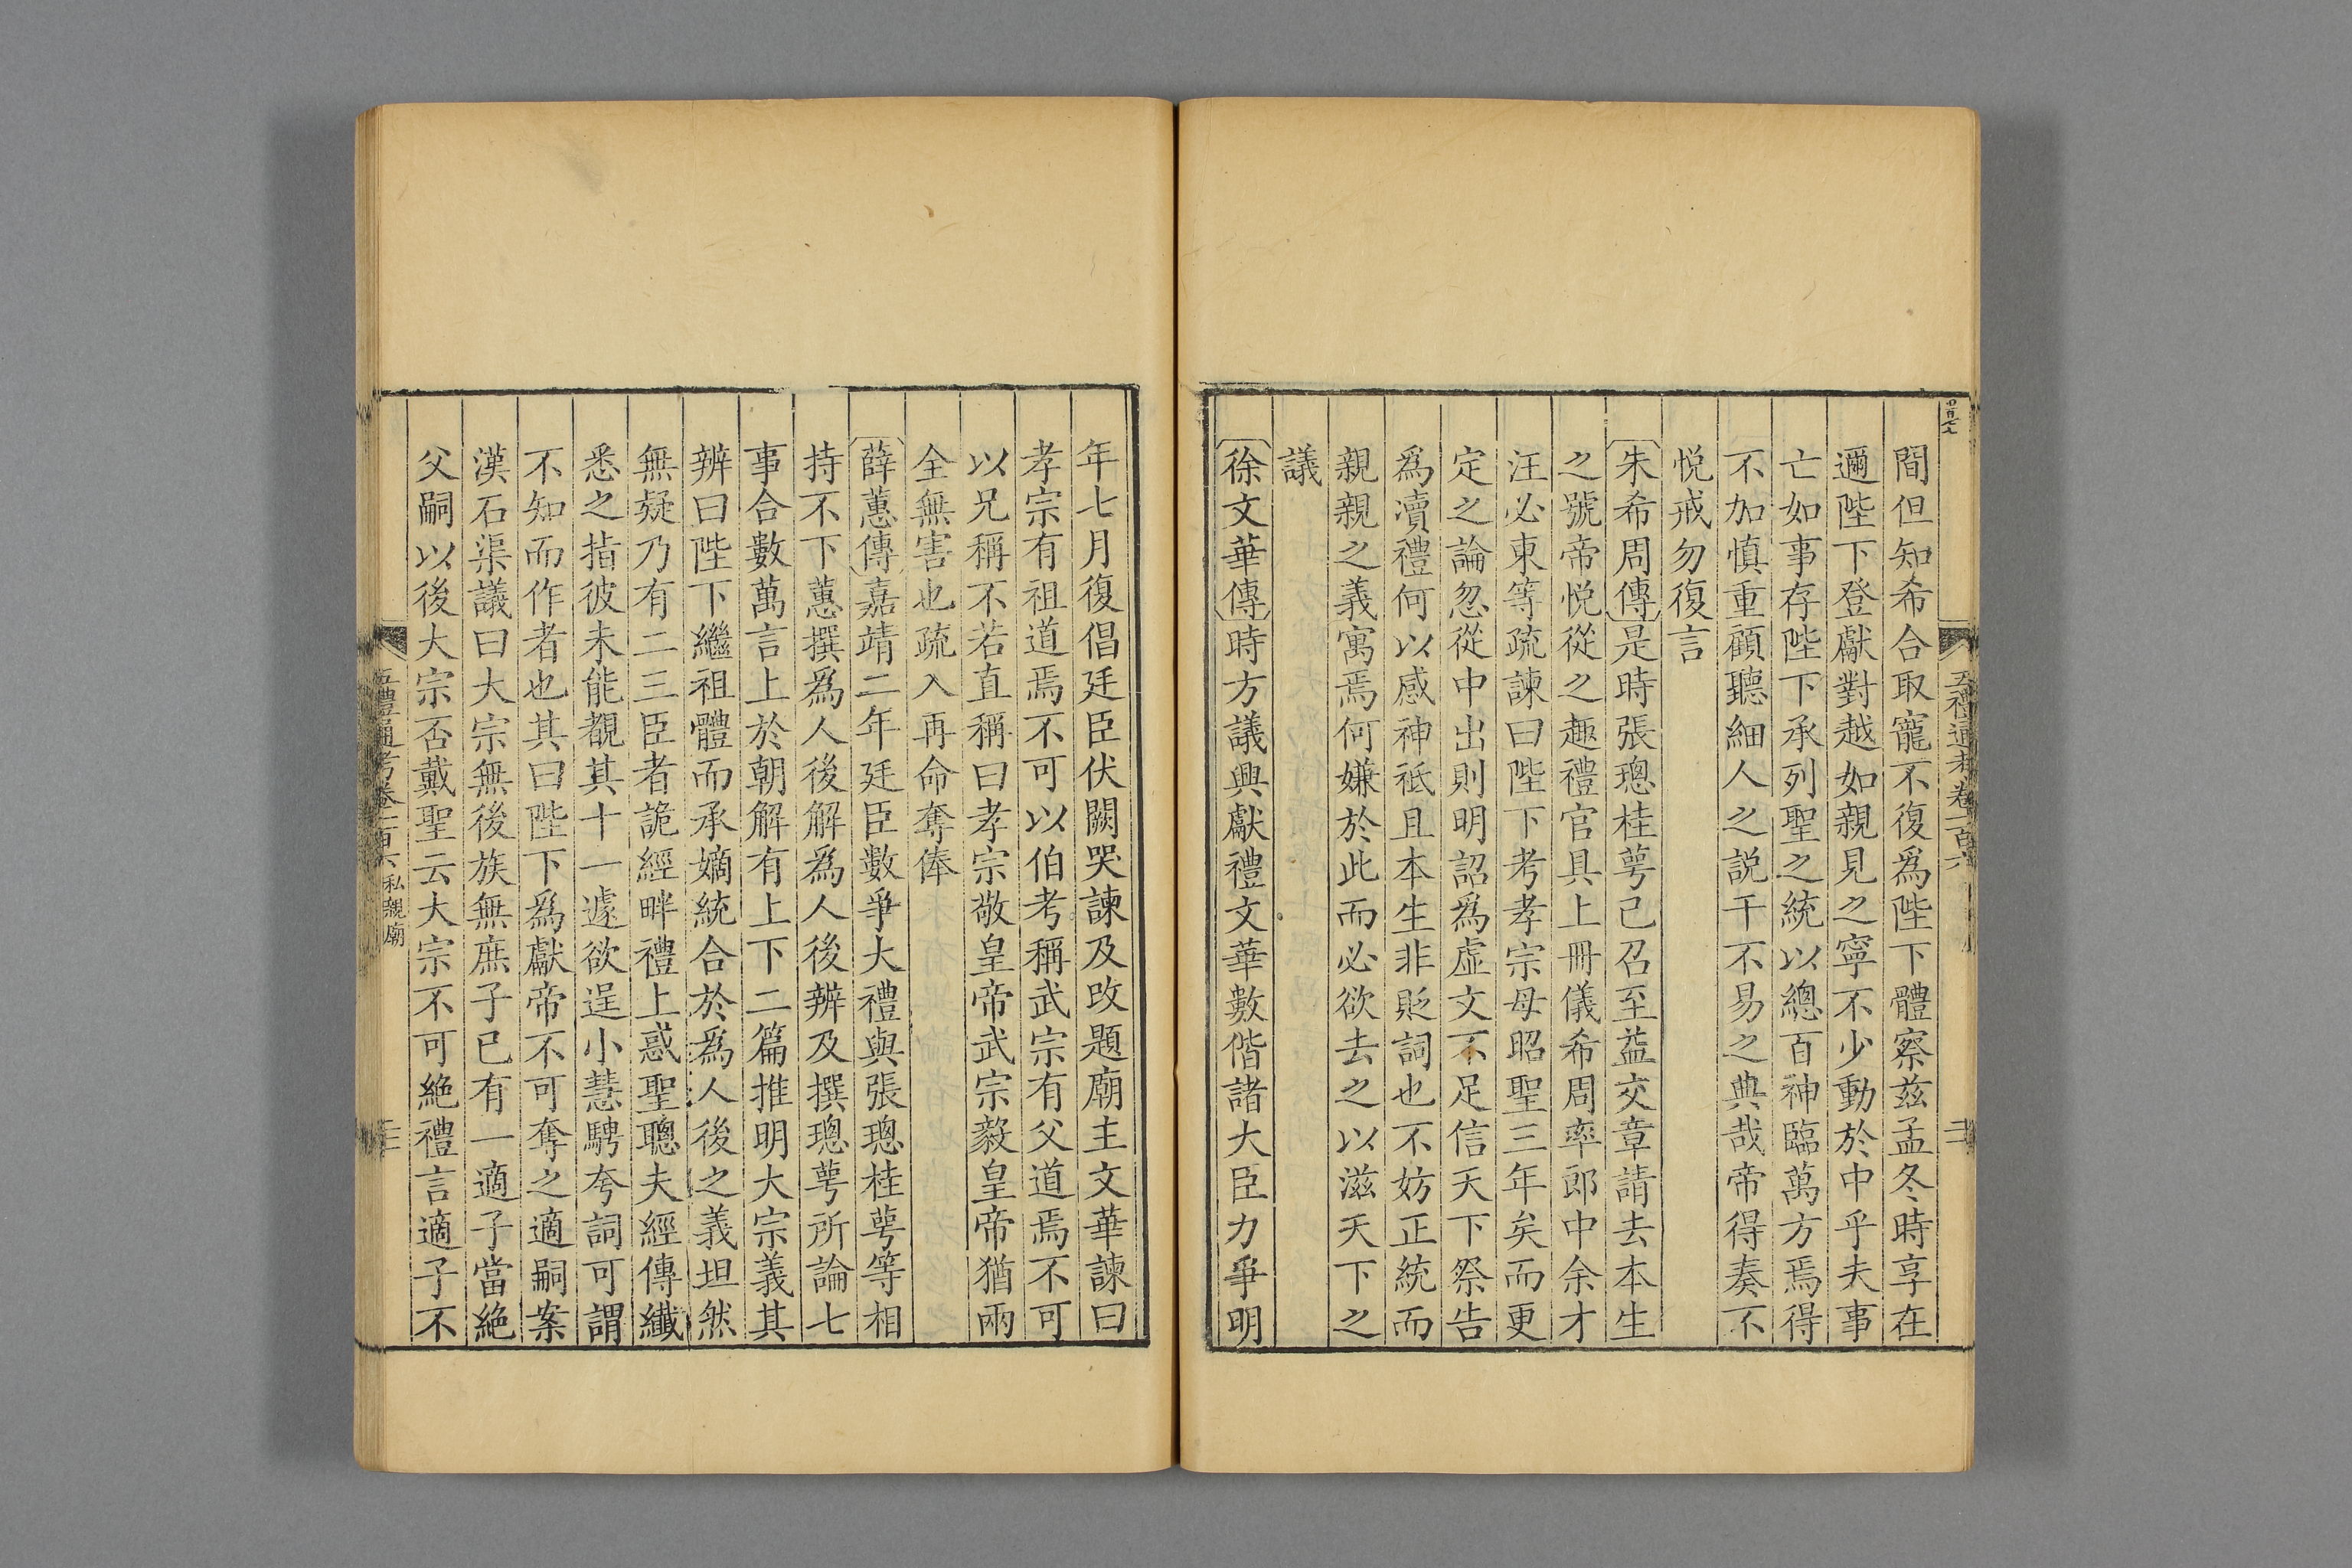 間但知希合取寵不復爲陛下體察兹孟冬時享在
邇陛下登獻對越如親見之寧不少動於中乎夫事
亡如事存陛下承列聖之統以總百神臨萬方焉得
不加慎重顧聽細人之説干不易之典哉帝得奏不
悦戒勿復言
朱希周傳是時張璁桂萼已召至益交章請去本生
之號帝悦從之趣禮官具上冊儀希周率郎中余才
汪必東等疏諫曰陛下考孝宗母昭聖三年矣而更
定之論忽從中出則明詔爲虛文不足信天下祭告
爲瀆禮何以感神祗且本生非貶詞也不妨正統而
親親之義寓焉何嫌於此而必欲去之以滋天下之
議
徐文華傳時方議興獻禮文華數偕諸大臣力爭明
年七月復倡廷臣伏闕哭諫及改題廟主文華諫曰
孝宗有祖道焉不可以伯考稱武宗有父道焉不可
以兄稱不若直稱曰孝宗敬皇帝武宗毅皇帝猶兩
全無害也疏入再命奪俸
薛蕙傳嘉靖二年廷臣數爭大禮與張璁桂萼等相
持不下蕙撰爲人後解爲人後辨及撰璁萼所論七
事合數萬言上於朝解有上下二篇推明大宗義其
辨曰陛下繼祖體而承嫡統合於爲人後之義坦然
無疑乃有二三臣者詭經畔禮上惑聖聰夫經傳纖
悉之指彼未能覩其十一遽欲逞小慧騁夸詞可謂
不知而作者也其曰陛下爲獻帝不可奪之適嗣案
漢石渠議曰大宗無後族無庶子已有一適子當絶
父嗣以後大宗否戴聖云大宗不可絶禮言適子不
五禮通考卷一百六 私親廟 三